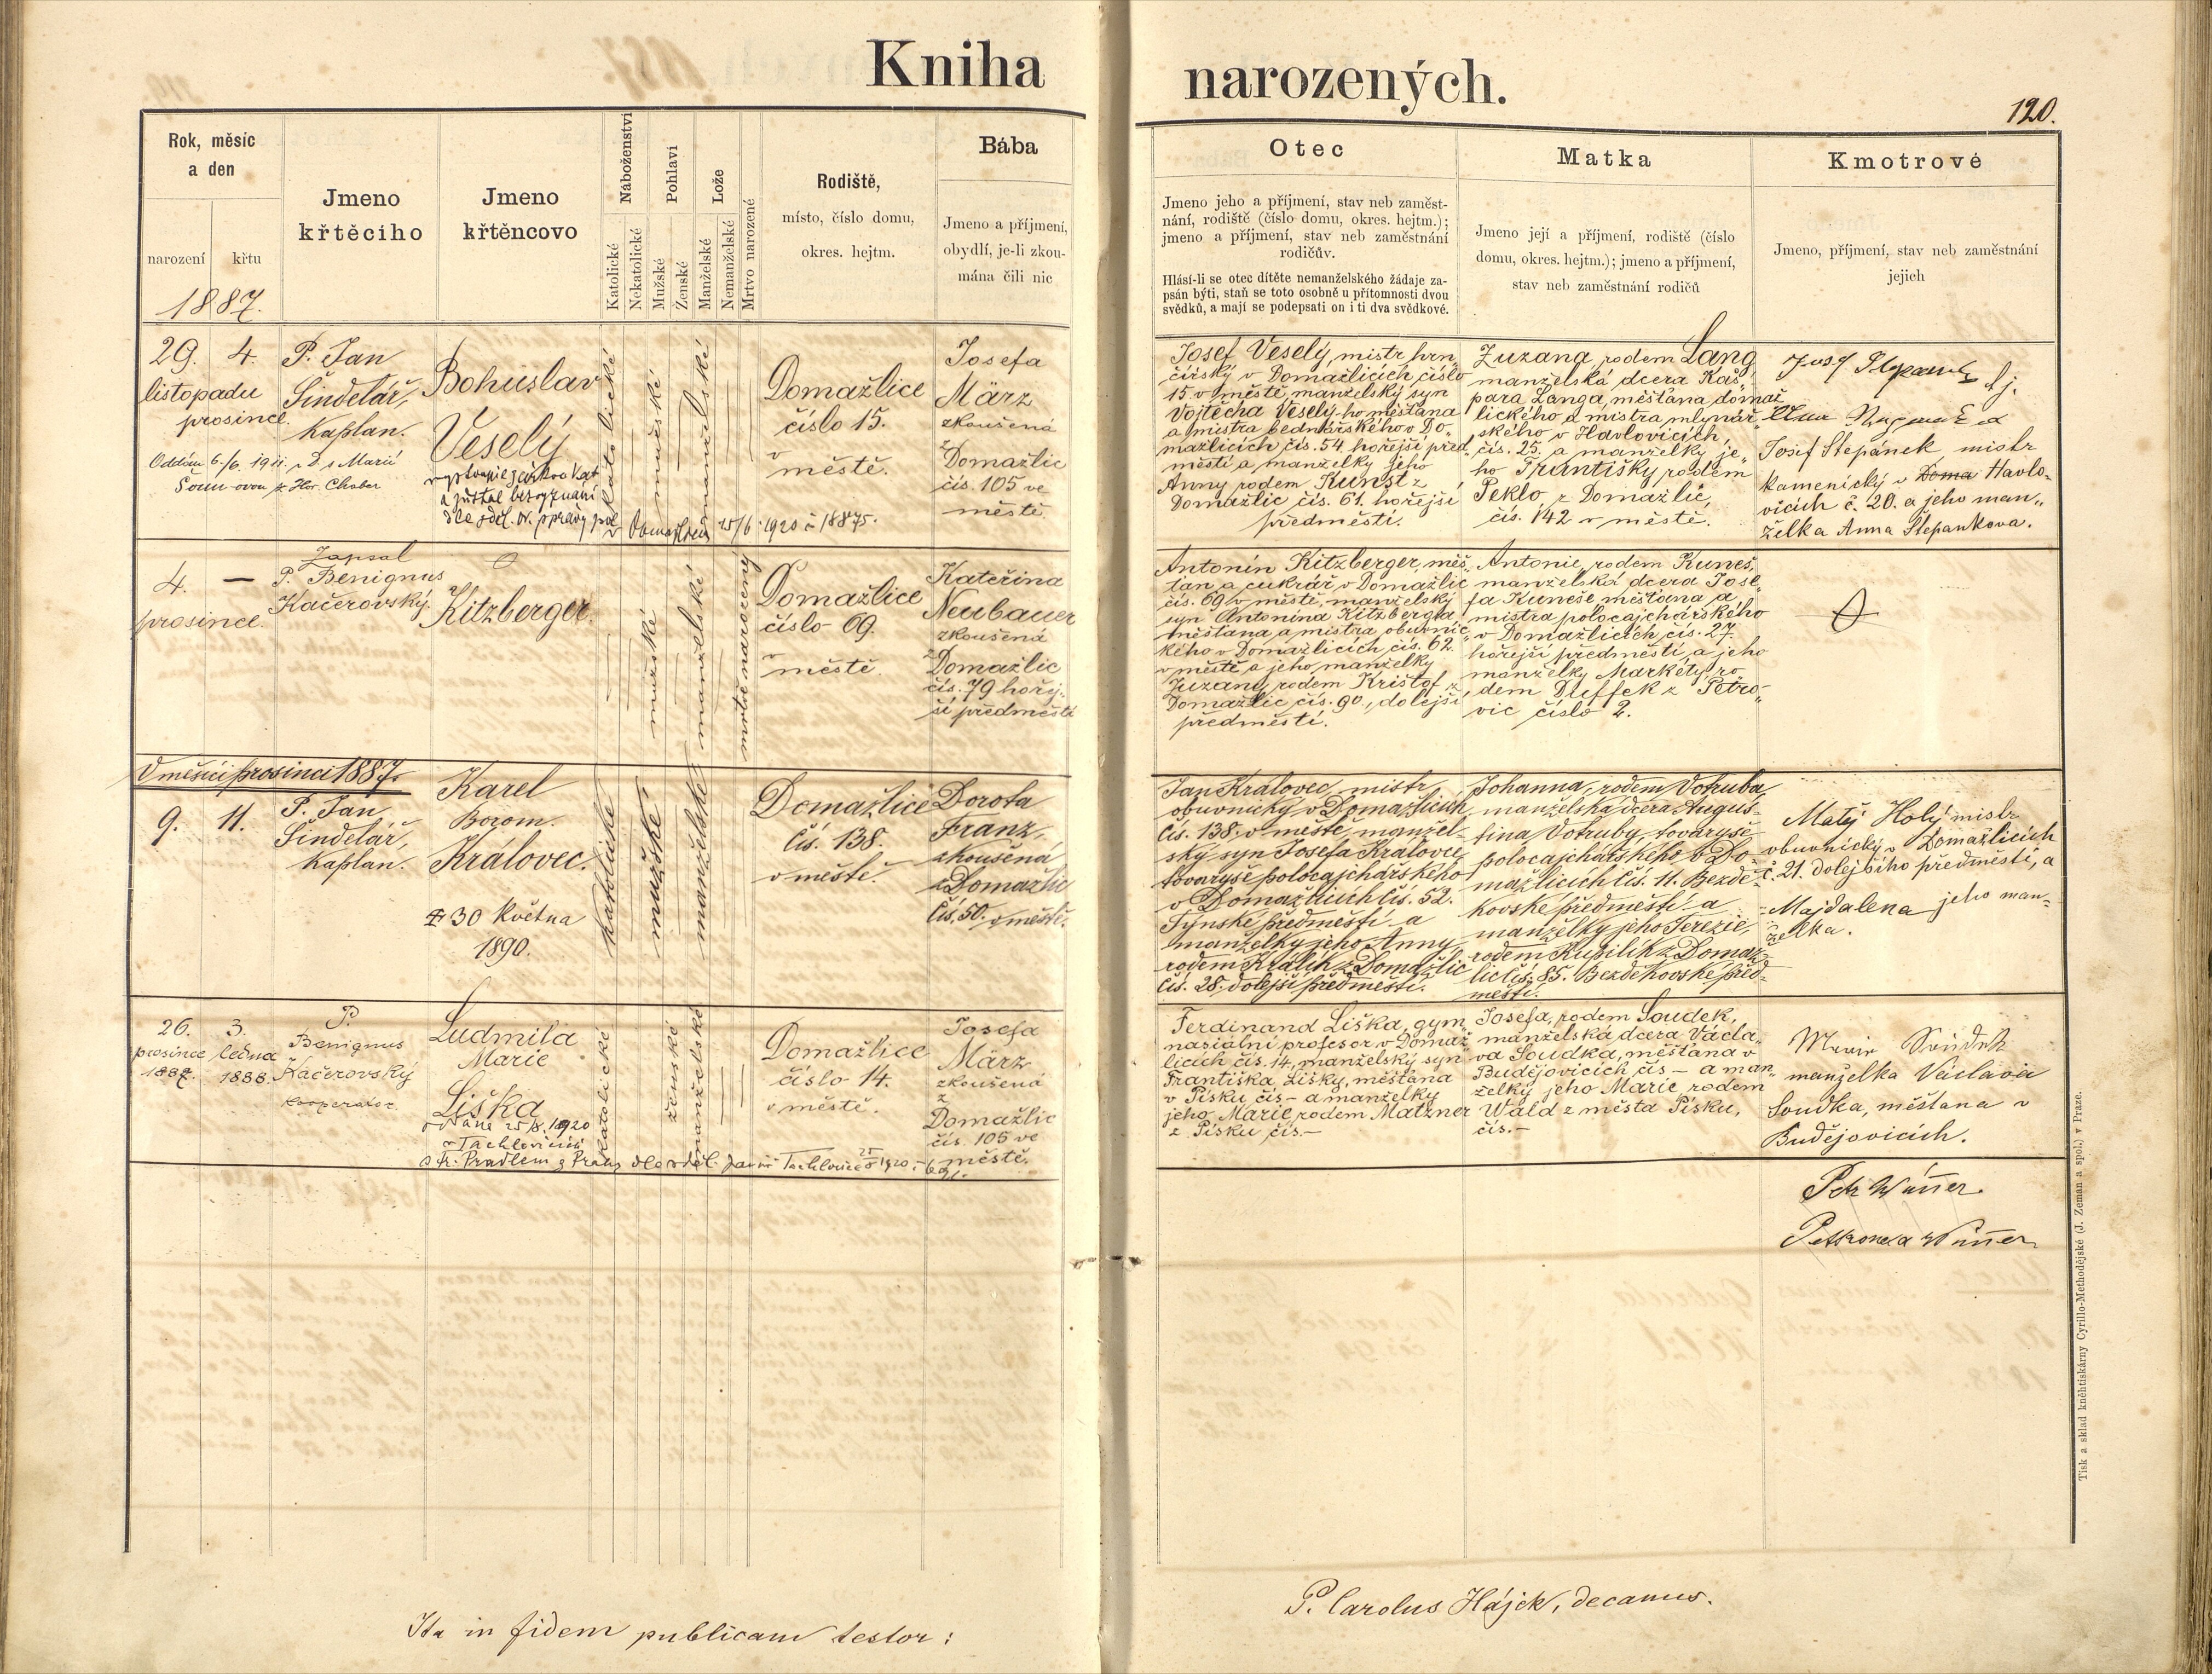 Kniha narozených.
120.
Rok, měsíc
a den
narození
křtu
1887.
Jmeno
křtěcího
Jmeno
křtěncovo
Náboženství
Katolické
Nekatolické
Pohlaví
Mužské
Ženské
Lože
Manželské
Nemanželské
Mrtvo narozené
Rodiště,
místo, číslo domu,
okres. hejtm.
Bába
Jmeno a příjmení,
obydlí, je-li zkou-
mána čili nic
Otec
Jmeno jeho a příjmení, stav neb zaměst-
nání, rodiště (číslo domu, okres. hejtm.);
jmeno a příjmení, stav neb zaměstnání
rodičův.
Hlásí-li se otec dítěte nemanželského žádaje za-
psán býti, staň se toto osobně u přítomnosti dvou
svědků, a mají se podepsati on i ti dva svědkové.
Matka
Jmeno její a příjmení, rodiště (číslo
domu, okres. hejtm.); jmeno a příjmení,
stav neb zaměstnání rodičů
Kmotrové
Jmeno, příjmení, stav neb zaměstnání
jejich
29. 4.
listopadu
prosince.
P. Jan
Šindelář,
kaplan.
Oddán 6./6. 1911 v D. s Marií
z Hor.
Bohuslav
Veselý
vystoupil z církve kat
a zůstal bez vyznání
dle sděl. ok. správy pol
v Domažlicích 25/6 1920 č 18875.
katolické
mužské
manželské
Domažlice
číslo 15.
v
městě.
Josefa
März
zkoušená
z
Domažlic
čís. 105 ve
městě
Josef Veselý, mistr hrn-
čířský v Domažlicích číslo
15 v městě, manželský syn
Vojtěcha Veselý-ho měšťana
a mistra bednářského v Do-
mažlicích čís. 54 hořejší před-
městí a manželky jeho
Anny rodem Kunst z
Domažlic čís. 61. hořejší
předměstí.
Zuzana, rodem Lang
manželská dcera Kaš-
para Langa, měšťana domaž
lického a mistra mlynář-
ského v Havlovicích,
čís. 25. a manželky je-
ho Františky rodem
Peklo z Domažlic,
čís. 142 v městě.
Josef Štěpánek, mistr
kamenický v Doma Havlo-
vicích č. 20. a jeho man-
želka Anna Štěpankova.
4. —
prosince.
Zapsal
P. Benignus
Kačerovský.
Kitzberger.
mužské
manželské
mrtvě narozený
Domažlice
číslo 69.
v
městě
Kateřina
Neubauer
zkoušená
z
Domažlic
čís. 79 hořej-
ší předměstí
Antonín Kitzberger, měš-
ťan a cukrář v Domažlic
čís. 69 v městě, manželský
syn Antonína Kitzbergra
měšťana a mistra obuvnic-
kého v Domažlicích čís. 62.
v městě a jeho manželky
Zuzany, rodem Krištof z
Domažlic, čís. 90., dolejší
předměstí.
Antonie, rodem Kuneš,
manželská dcera Jose-
fa Kuneše měšťana a
mistra polocajchářského
v Domažlicích čís. 27.
hořejší předměstí a jeho
manželky Markéty, ro-
dem Duffek z Petro-
vic číslo 2.
V měsíci prosinci 1887.
9. 11.
P. Jan
Šindelář,
kaplan.
Karel
Borom.
Královec.
30 května
1890.
katolické
mužské
manželské
Domažlice
čís. 138.
v městě.
Dorota
Franz,
zkoušená
z Domažlic
čís. 50. v městě.
Jan Královec, mistr
obuvnický v Domažlicích
čís. 138. v městě, manžel-
ský syn Josefa Královce,
tovaryše polocajchářského
v Domažlicích čís. 52.
Týnské předměstí a
manželky jeho Anny,
rodem Králík z Domažlic
čís. 28. dolejší předměstí.
Johanna, rodem Votruba,
manželská dcera Augus-
tina Votruby, tovaryše
polocajchářského v Do-
mažlicích čís. 11. Bezdě-
kovské předměstí a
manželky jeho Terezie,
rodem Kubilík z Domaž-
lic čís. 85. Bezděkovské před-
městí.
Matěj Holý mistr
obuvnický v Domažlicích
č. 21. dolejšího předměstí, a
Majdalena jeho man-
želka.
26. 3.
prosince ledna
1887. 1888.
P.
Benignus
Kačerovský
kooperator.
Ludmila
Marie
Liška
oddána 25/8. 1920
v Tachlovicích
s Fr. Pradlem z Prahy dle sděl. far. úř. Tachlovice
katolické
ženské
manželské
Domažlice
číslo 14.
v městě.
Josefa
März
zkoušená
z
Domažlic
čís. 105 ve
městě.
Ferdinand Liška, gym-
nasialní profesor v Domaž
licích čís. 14, manželský syn
Františka Lišky, měšťana
v Písku čís— a manželky
jeho Marie rodem Matzner
z Písku čís.—
Josefa, rodem Soudek,
manželská dcera Václa-
va Soudka, měšťana v
Budějovicích čís — a man-
želky jeho Marie rodem
Wald z města Písku,
čís.—
manželka Václava
Soudka, měšťana v
Budějovicích.
Ita in fidem publicam testor:
P. Carolus Hájek, decanus.
Tisk a sklad kněhtiskárny Cyrillo-Methodějské (J. Zeman a spol.) v Praze.